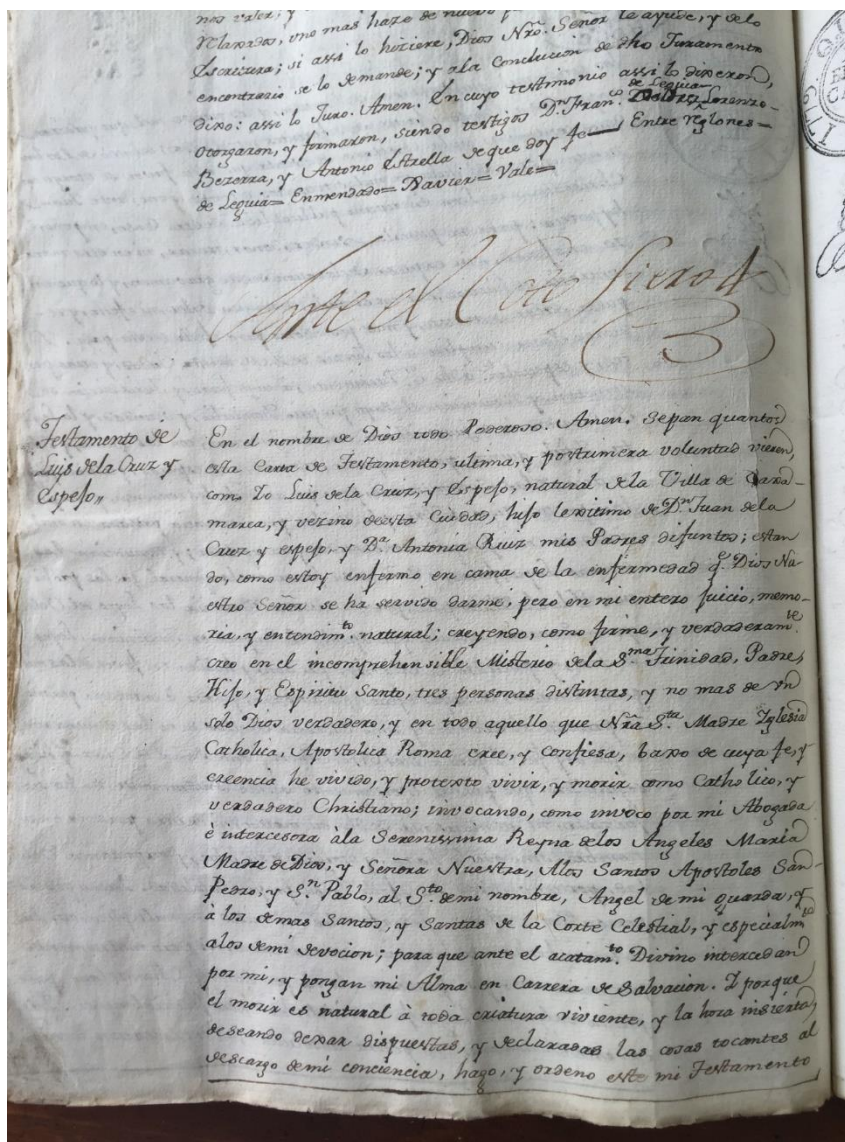 nos valer, y
relaxados, uno mas hago de nuevo
Escritura; si assi lo hiziere, Dios Nrô. Señor le ayude, y de lo
encontrario se lo demande; y ala Conclucion de dho Juramento
dixo: assi lo Juro. Amen. En cuyo testimonio assi lo dixeron,
de Leguia
otorgaron, y firmaron, siendo testigos D.n Fran.co Lorenzo
Bezerra, y Antonio Estrella de que doy fe — Entre reglones=
de Leguia= Enmendado= Xavier= Vale=
Testamento de
Luis dela Cruz y
Espejo„
En el nombre de Dios todo Poderoso. Amen. Sepan quantos
esta Carta de Testamento, ultima, y postrimera voluntad vieren,
como Yo Luis dela Cruz, y Espejo, natural dela Villa de Caxa-
marca, y vezino desta Ciudad, hijo lexitimo de D.n Juan dela
Cruz y espejo, y D.a Antonia Ruiz mis Padres difuntos; estan
do, como estoy enfermo en cama de la enfermedad q.e Dios Nu
estro Señor se ha servido darme, pero en mi entero juicio, memo-
ria, y entendim.to natural; creyendo, como firme, y verdaderam.te
creo en el incomprehensible Misterio dela S.ma Trinidad, Padre,
Hijo, y Espiritu Santo, tres personas distintas, y no mas de vn
solo Dios verdadero, y en todo aquello que Nrâ S.ta Madre Yglesia
Catholica, Apostolica Roma cree, y confiesa, baxo de cuya fe, y
creencia he vivido, y protexto vivir, y morir como Catholico, y
verdadero Christiano; invocando, como invoco por mi Abogada
è intercesora àla Serenissima Reyna delos Angeles Maria
Madre de Dios, y Señora Nuestra, Alos Santos Apostoles San
Pedro, y S.n Pablo, al S.to demi nombre, Angel de mi guarda, y
à los demas Santos, y Santas de la Corte Celestial, y especialm.te
alos demi devocion; para que ante el acatam.to Divino intercedan
por mi, y pongan mi Alma en Carrera de Salvacion. Y porque
el morir es natural à toda criatura viviente, y la hora insierta,
deseando dexar dispuestas, y declaradas las cosas tocantes al
descargo demi conciencia, hago, y ordeno este mi Testamento